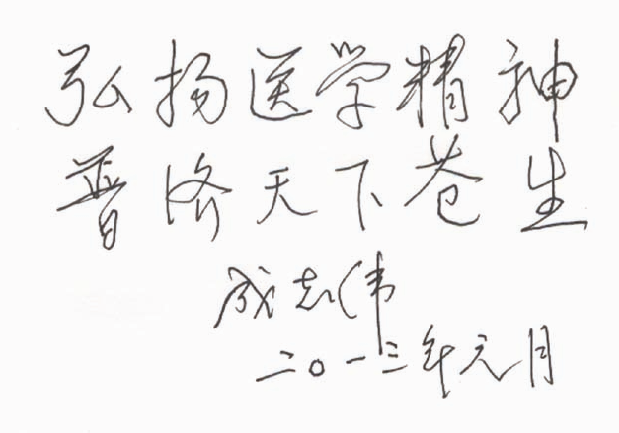 弘扬医学精神
普济天下苍生
成志伟
二〇一三年元月